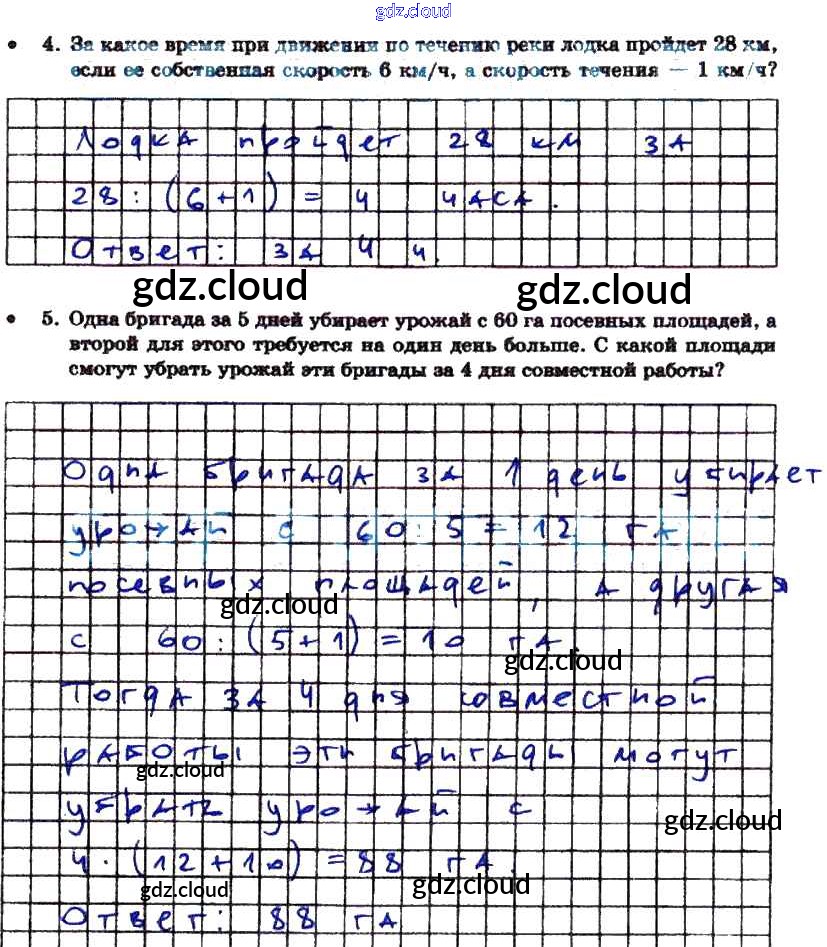 gdz.cloud
4. За какое время при движении по течению реки лодка пройдет 28 км,
если ее собственная скорость 6 км/ч, а скорость течения — 1 км/ч?
Лодка пройдет 28 км за
28 : (6+1) = 4 часа.
Ответ: за 4 ч.
gdz.cloud gdz.cloud
5. Одна бригада за 5 дней убирает урожай с 60 га посевных площадей, а
второй для этого требуется на один день больше. С какой площади
смогут убрать урожай эти бригады за 4 дня совместной работы?
Одна бригада за 1 день убирает
урожай с 60:5=12 га
посевных площадей, а другая
gdz.cloud
с 60:(5+1)=10 га.
gdz.cloud
Тогда за 4 дня совместной
работы эти бригады могут
gdz.cloud
убрать урожай с
gdz.cloud
4·(12+10)=88 га.
gdz.cloud gdz.cloud
Ответ: 88 га